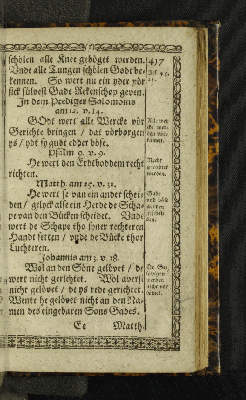 schölen alle Knee geböget werden.
Vnde alle Tungen schölen Godt be-
kennen. So wert nu ein yder vör
sick sülvest Gade Rekenschop geven.
In dem Prediger Salomonis
am 12. v. 14.
GOdt wert alle Wercke vör
Gerichte bringen / dat vörborgen
ys / ydt sy gudt edder böse.
Psalm 9. v. 9.
He wert den Erdtboddem recht
richten.
Matth. am 25. v. 31.
He wert se van ein ander schei-
den / gelyck alse ein Herde de Scha-
pe van den Bücken scheidet. Vnde
wert de Schape tho syner rechteren
Handt setten / vnde de Bücke thor
Luchteren.
Johannis am 3. v. 18.
Wol an den Söne gelövet / de
wert nicht gerichtet. Wol överst
nicht gelövet / de ys rede gerichtet.
Wente he gelövet nicht an den Na-
men des eingebaren Sons Gades.
Ee Matth.
417
Recht